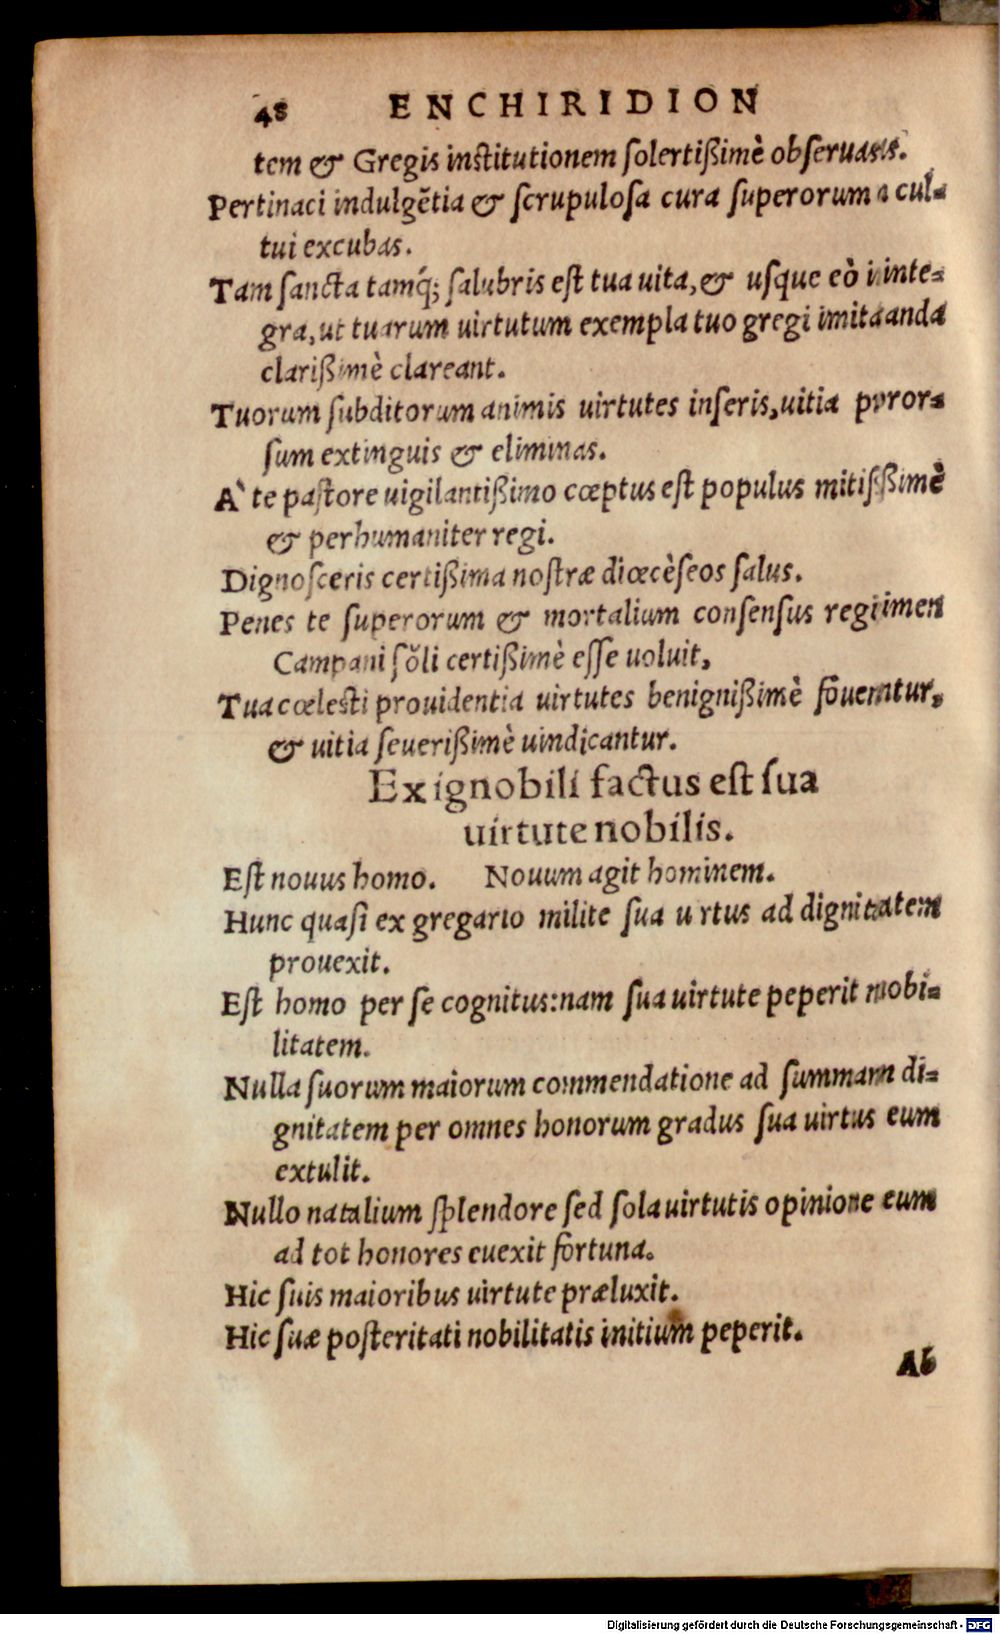 48 ENCHIRIDION
tem & Gregis institutionem ſolertißimè obſeruasis.
Pertinaci indulgẽtia & ſcrupuloſa cura ſuperorum a cul-
tui excubas.
Tam ſancta tamq́; ſalubris eſt tua uita, & uſque eò inte-
gra, ut tuarum uirtutum exempla tuo gregi imitaanda
clarißimè clareant.
Tuorum ſubditorum animis uirtutes inſeris, uitia pror-
ſum extinguis & eliminas.
A' te paſtore uigilantißimo cœptus eſt populus mitiſßimè
& perhumaniter regi.
Dignoſceris certißima noſtræ diœcèſeos ſalus.
Penes te ſuperorum & mortalium conſenſus regiimen
Campani ſŏli certißimè eſſe uoluit,
Tua cœlesti prouidentia uirtutes benignißimè fouemtur,
& uitia ſeuerißimè uindicantur.
Ex ignobili factus eſt ſua
uirtute nobilis.
Eſt nouus homo. Nouum agit hominem.
Hunc quaſi ex gregario milite ſua u rtus ad dignitatem
prouexit.
Eſt homo per ſe cognitus: nam ſua uirtute peperit nobi-
litatem.
Nulla ſuorum maiorum commendatione ad ſummam di-
gnitatem per omnes honorum gradus ſua uirtus eum
extulit.
Nullo natalium ſplendore ſed ſola uirtutis opinione eum
ad tot honores euexit fortuna.
Hic ſuis maioribus uirtute præluxit.
Hic ſuæ poſteritati nobilitatis initium peperit.
Ab
Digitalisierung gefördert durch die Deutsche Forschungsgemeinschaft - DFG